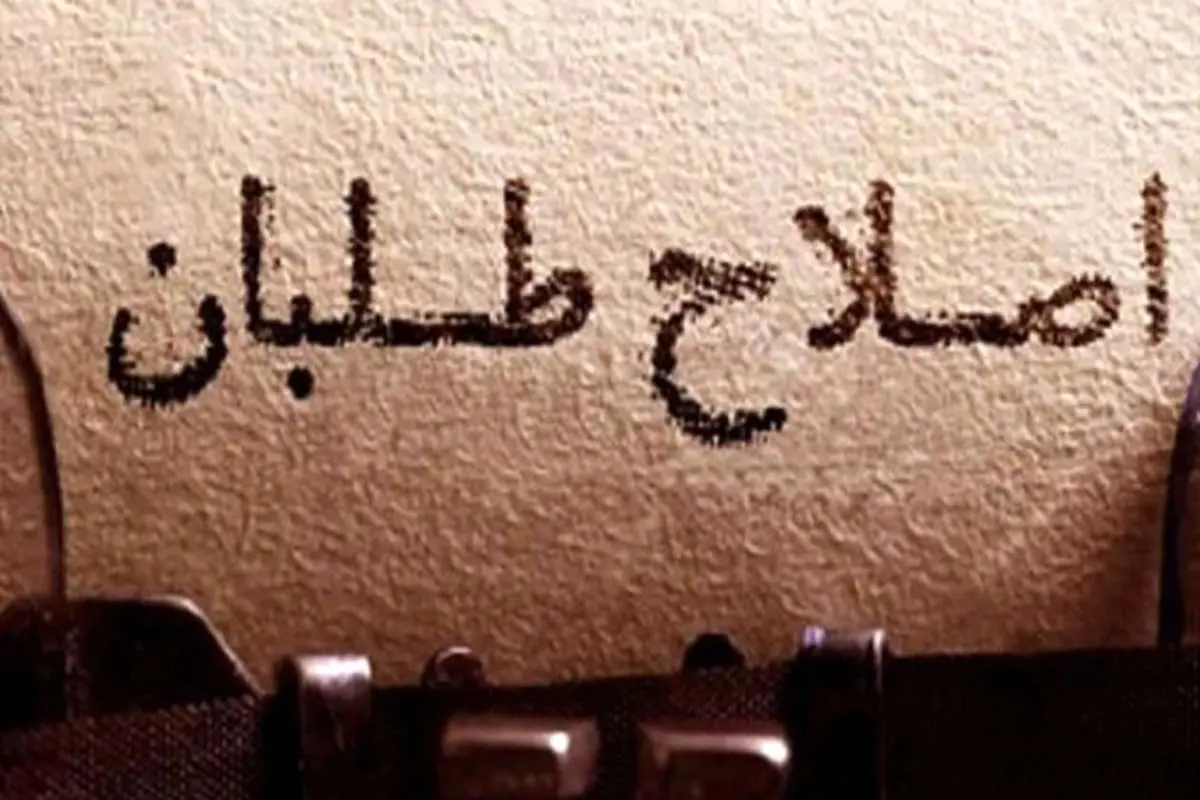 اصلاح طلبان